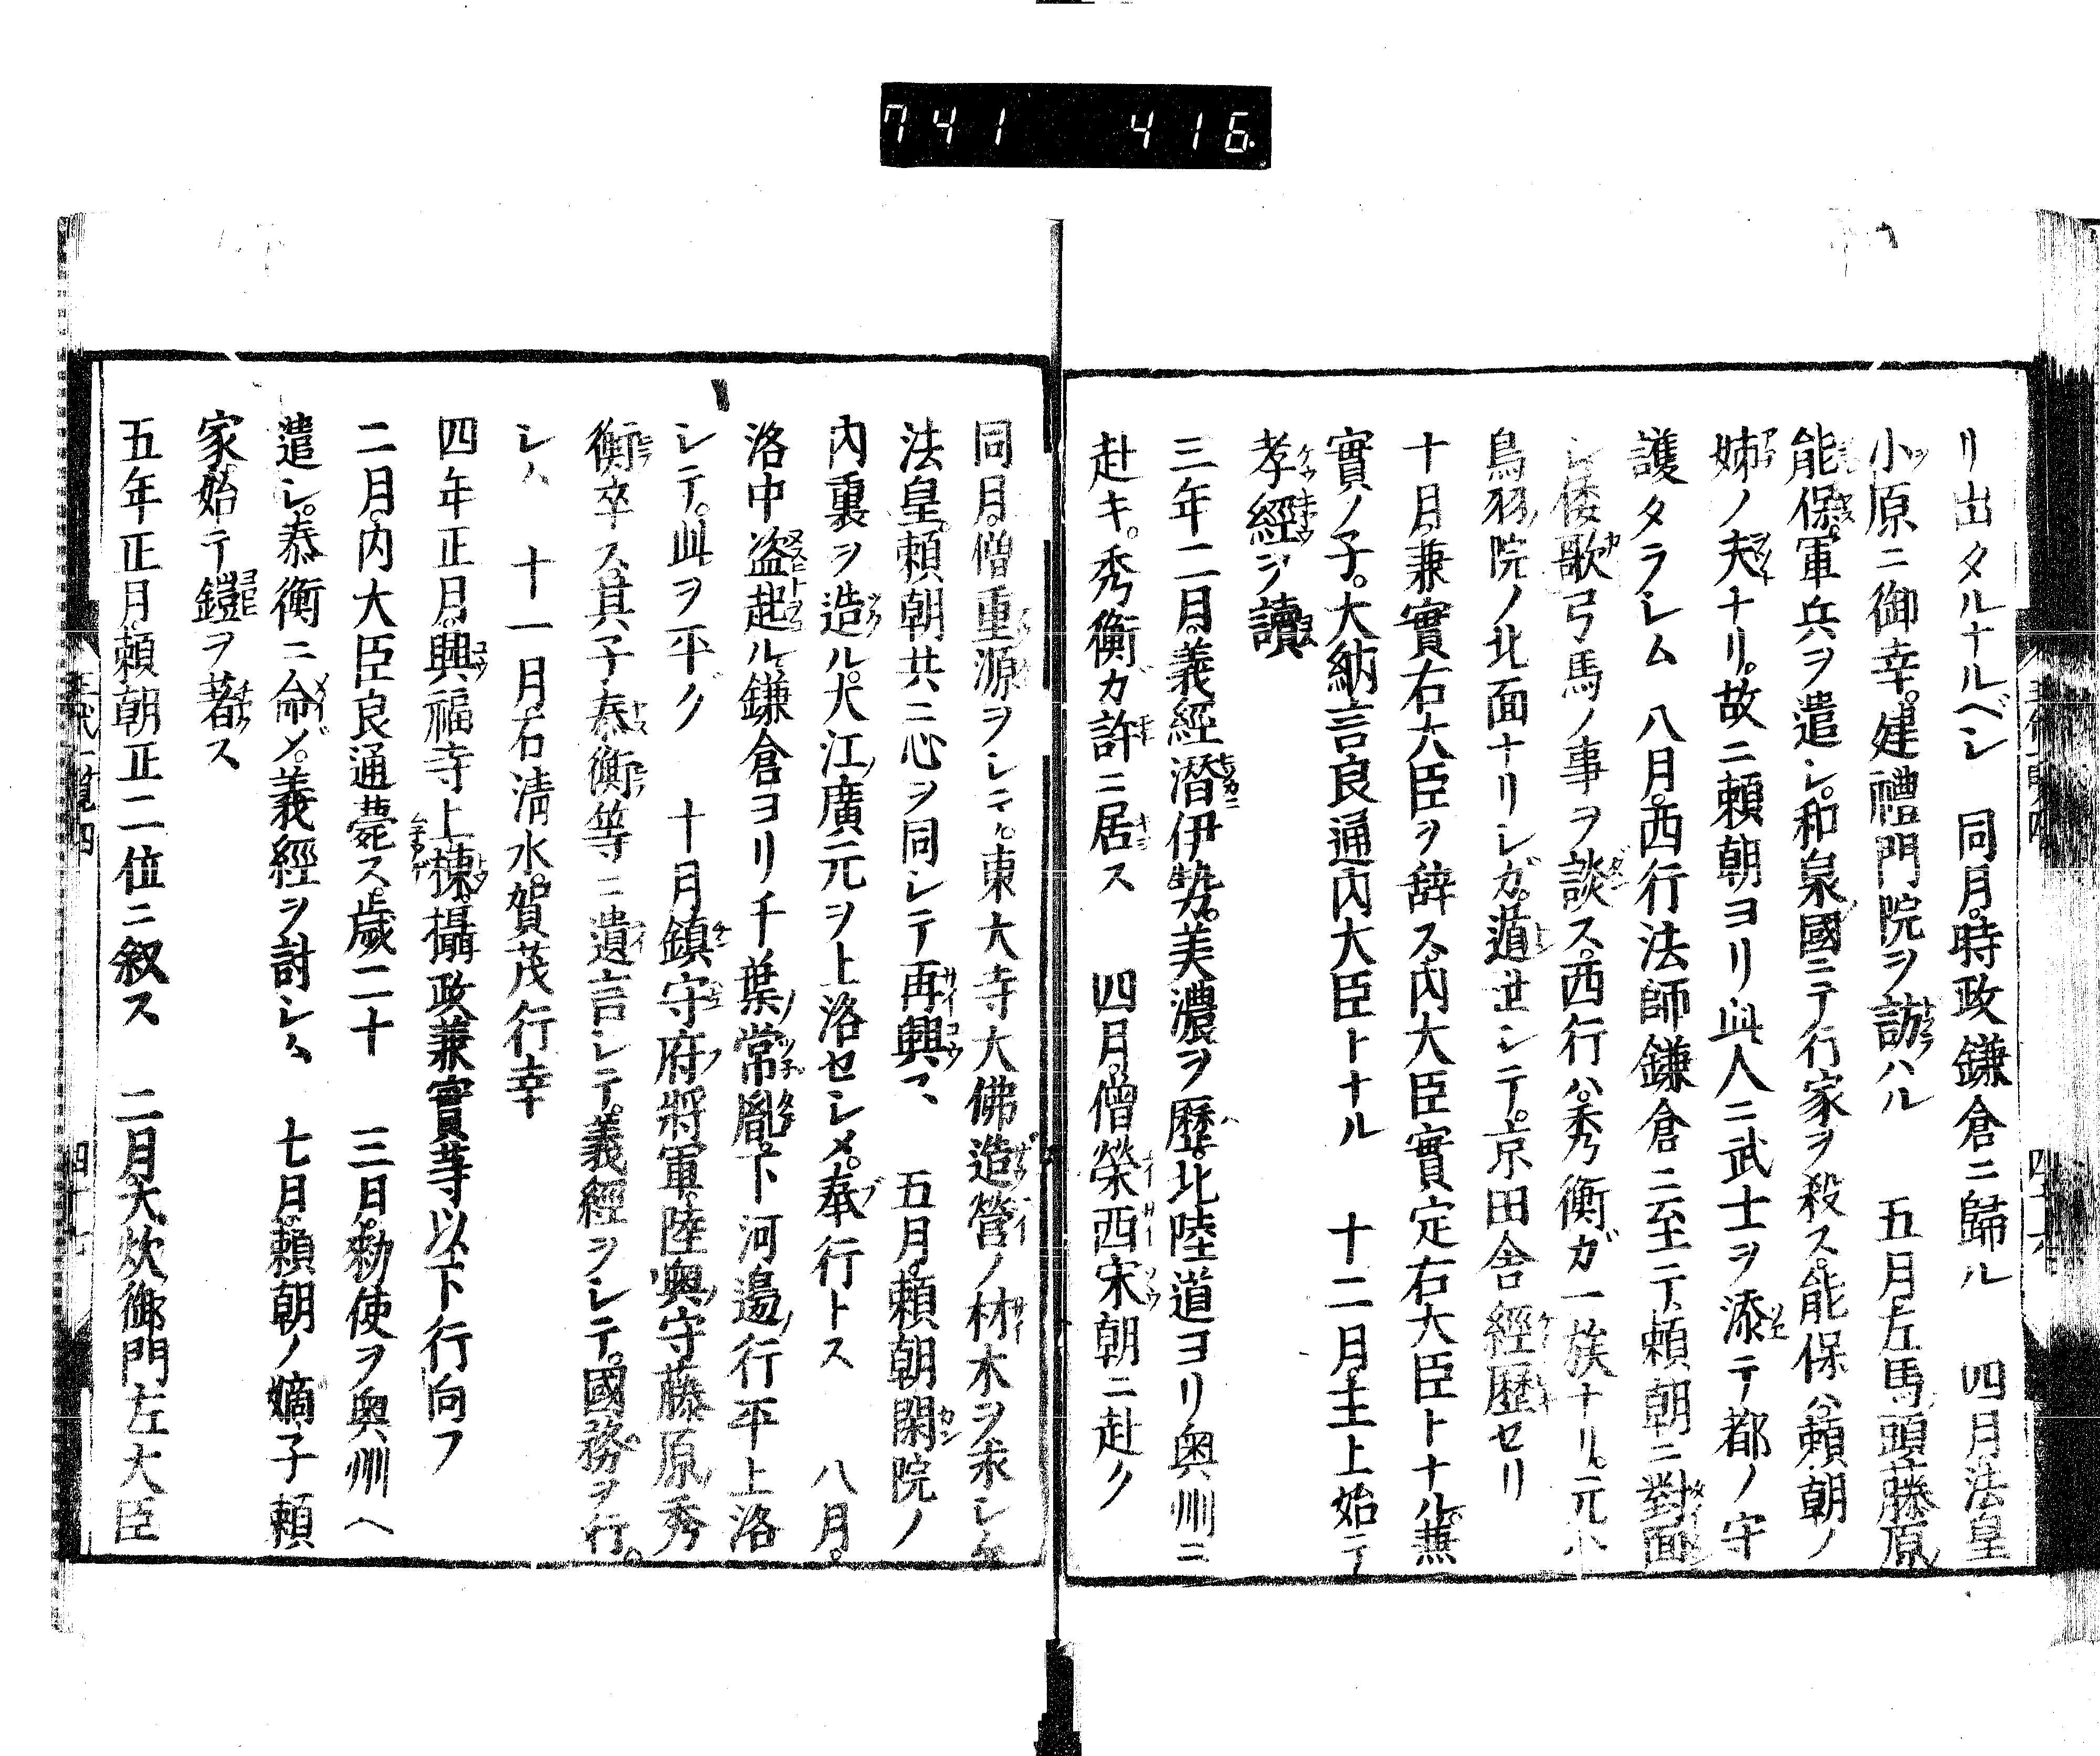 741 416
リ出タルナルベシ 同月。時政鎌倉ニ歸ル 四月法皇
小原ニ御幸。建禮門院ヲ訪ハル 五月左馬頭藤原
能保。軍兵ヲ遣シ。和泉國ニテ行家ヲ殺ス。能保ハ頼朝ノ
姊ノ夫ナリ。故ニ頼朝ヨリ此人ニ武士ヲ添テ都ノ守
護タラシム 八月。西行法師鎌倉ニ至テ、頼朝ニ對面
シ倭歌弓馬ノ事ヲ談ス。西行ハ。秀衡ガ一族ナリ。元ハ
鳥羽院ノ北面ナリシガ。遁世シテ。京田舎經歴セリ
十月。兼實右大臣ヲ辞ス。内大臣實定右大臣トナル。兼
實ノ子。大納言良通内大臣トナル 十二月。主上始テ
孝經ヲ讀
三年二月。義經潛伊勢。美濃ヲ歷。北陸道ヨリ奥州ニ
赴キ。秀衡ガ許ニ居ス 四月。僧榮西宋朝ニ赴ク
同月。僧重源ヲシテ。東大寺大佛造營ノ材木ヲ求シム
法皇。頼朝共ニ心ヲ同シテ再興ス 五月。頼朝閑院ノ
内裏ヲ造ル。大江廣元ヲ上洛セシメ。奉行トス 八月。
洛中盗起ル。鎌倉ヨリ千葉常胤。下河邊行平上洛
シテ。此ヲ平グ 十月鎮守府將軍。陸奥守藤原秀
衡卒ス。其子泰衡等ニ遺言シテ。義經ヲシテ。國務ヲ行。
シム 十一月。石清水。賀茂行幸
四年正月。興福寺上棟。攝政兼實等以下行向フ
二月。内大臣良通薨ス。歳二十 三月。勅使ヲ奥州ヘ
遣シ。泰衡ニ命メ。義經ヲ討シム 七月。頼朝ノ嫡子頼
家始テ鎧ヲ著ス
五年正月。頼朝正二位ニ叙ス 二月。大炊御門左大臣
王代一覽四 四十七